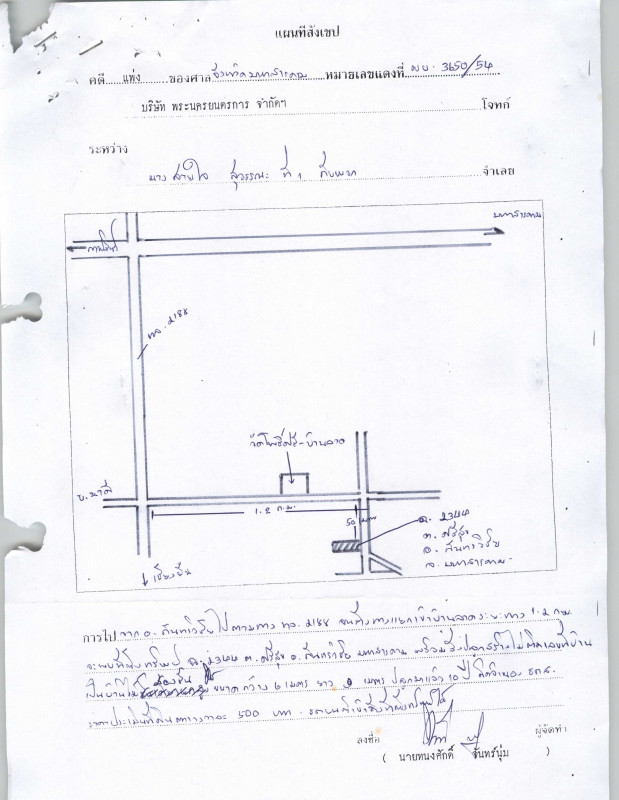 แผนที่สังเขป
คดี แพ่ง ของศาล จังหวัดมหาสารคาม หมายเลขแดงที่ ผบ. 3650/54
บริษัท พระนครยนตรการ จำกัดฯ โจทก์
ระหว่าง
นาง สายใจ สุวรรณะ ที่ 1 กับพวก จำเลย
มหาสารคาม
ทล. 2188
วัดโพธิ์ศรี-บ้านลาด
บ.นาดี
1.2 ก.ม.
50 เมตร
ฉ. 2344
ต. ศรีสุข
อ. กันทรวิชัย
จ. มหาสารคาม
เชียงยืน
การไป จาก อ. กันทรวิชัย ไปตามทาง ทล. 2188 จนถึงทางแยกเข้าบ้านลาดระยะทาง 1.2 กม.
จะพบที่ตั้งทรัพย์ ฉ. 2344 ต.ศรีสุข อ.กันทรวิชัย มหาสารคาม พร้อมสิ่งปลูกสร้างไม่ติดเลขที่บ้าน
เป็นบ้านไม้ สองชั้น ขนาด กว้าง 6 เมตร ยาว 9 เมตร ปลูกมาแล้ว 10 ปี ติดจำนอง ธกส.
ราคาประเมินที่ดินตารางวาละ 500 บาท. รถยนต์เข้าถึงที่ตั้งทรัพย์ได้
ลงชื่อ ผู้จัดทำ
( นายทนงศักดิ์ จันทร์นุ่ม )